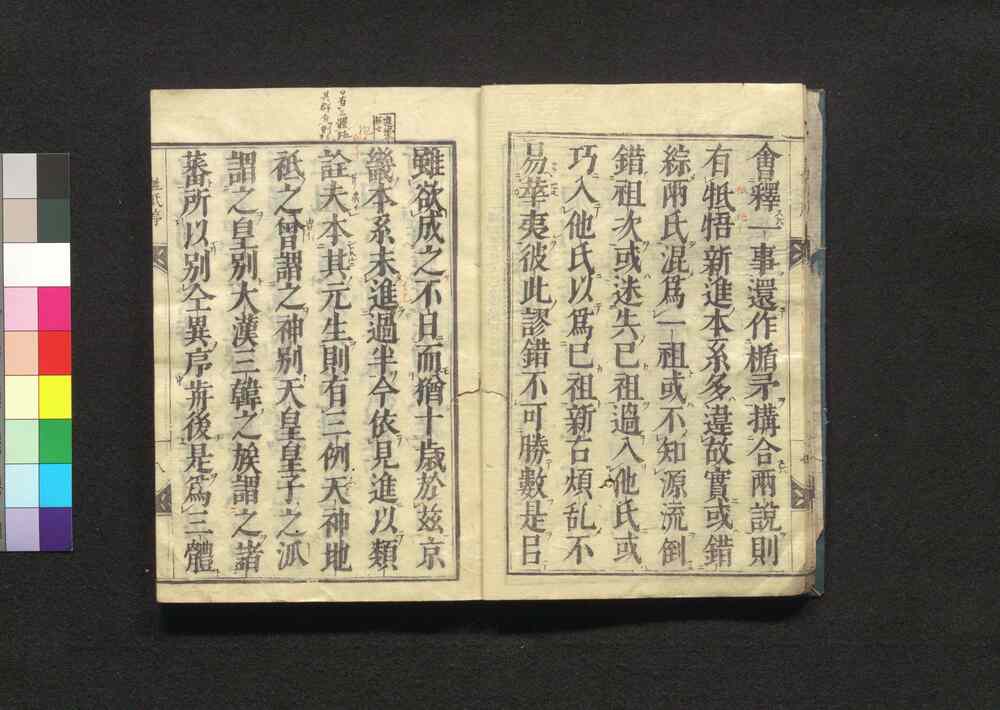 會釋一事還作楯矛搆合兩說則
有牴牾新進本系多違故實或錯
綜兩氏混爲一祖或不知源流倒
錯祖次或迷失巳祖過入他氏或
巧入他氏以爲巳祖新古煩乱不
易芟夷彼此謬錯不可勝數是㠯
雖欲成之不日而猶十歲於茲京
畿本系未進過半今依見進以類
詮夫本其元生則有三例天神地
祇之曾謂之神別天皇皇子之泒
謂之皇別大漢三韓之族謂之諸
蕃所以別仝異序歬後是爲三體